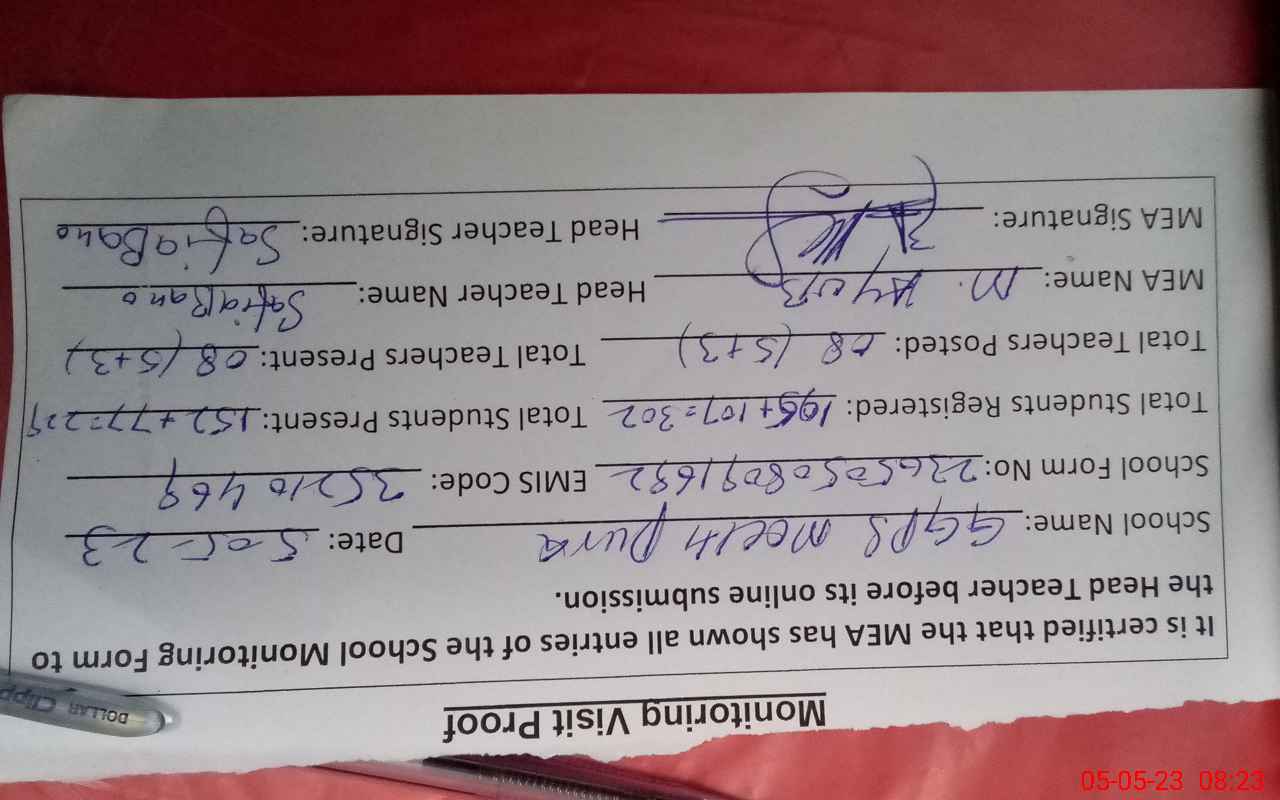 Monitoring Visit Proof
It is certified that the MEA has shown all entries of the School Monitoring Form to
the Head Teacher before its online submission.
School Name: GGPS Mochi pura Date: 5-05-23
School Form No: EMIS Code: 35210469
Total Students Registered: 195+107=302 Total Students Present: 152+77=229
Total Teachers Posted: 08 (5+3) Total Teachers Present: 08 (5+3)
MEA Name: M. Ayub Head Teacher Name: Safia Bano
MEA Signature: Head Teacher Signature: Safia Bano
DOLLAR Clipp
05-05-23 08:23